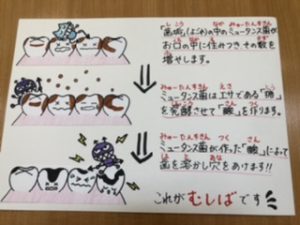 歯垢(よごれ)の中のミュータンス菌が
お口の中に住みつきその数を
増やします。
ミュータンス菌はエサである「糖」
を発酵させて「酸」を作ります。
ミュータンス菌が作った「酸」によって
歯を溶かし穴をあけます!!
これがむしばです